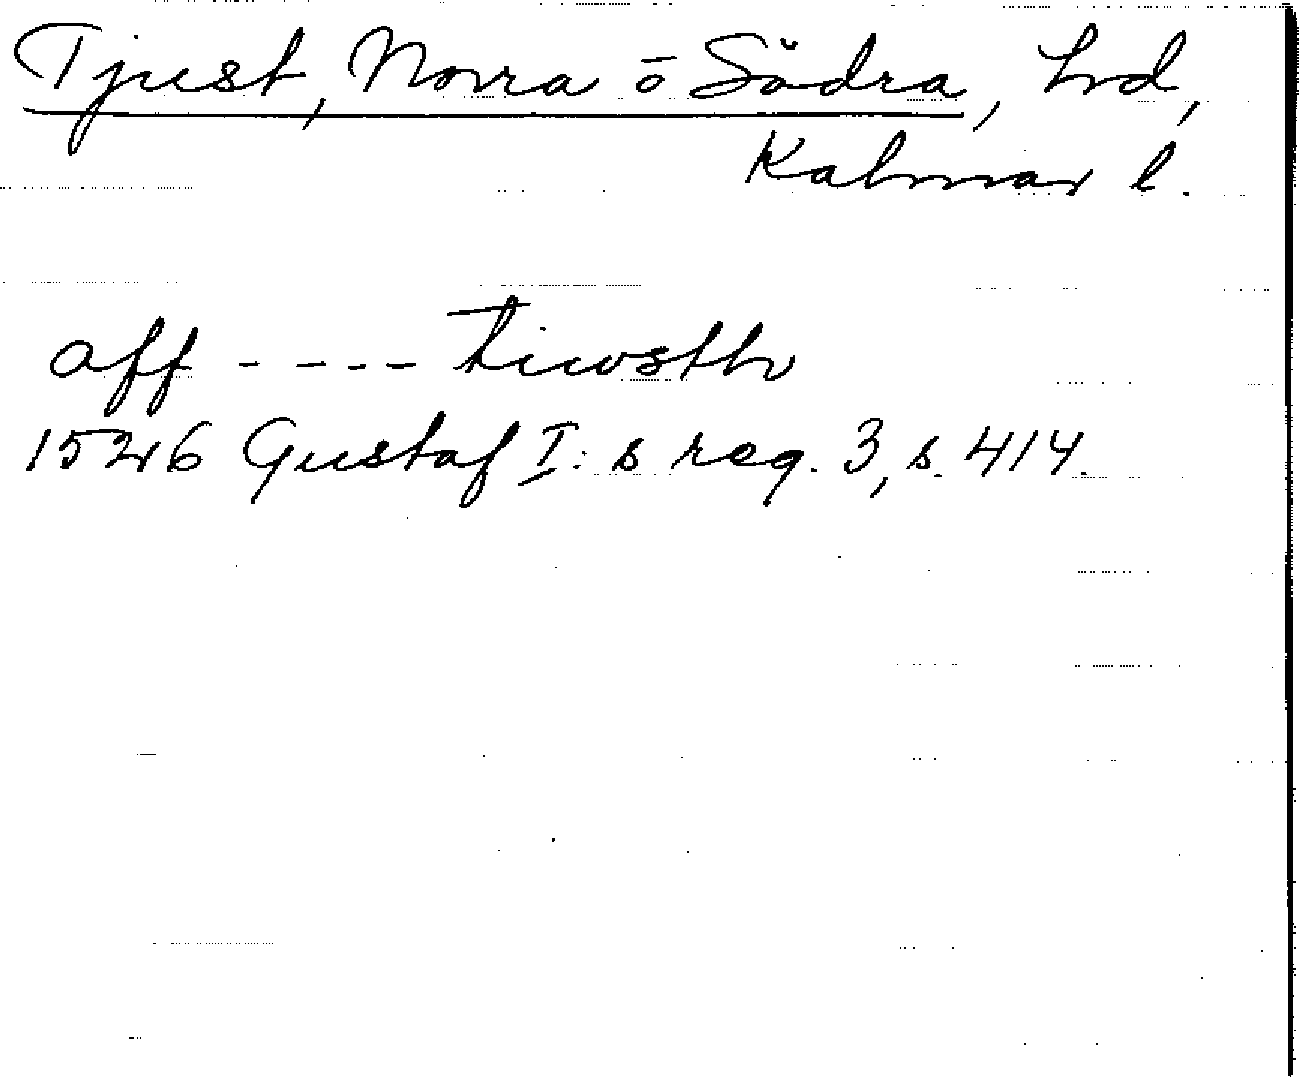 Tjust, Norra o Södra, hd,
Kalmar l.
aff - - - - Tiwsth
1526 Gustaf I:s reg. 3, s. 414.